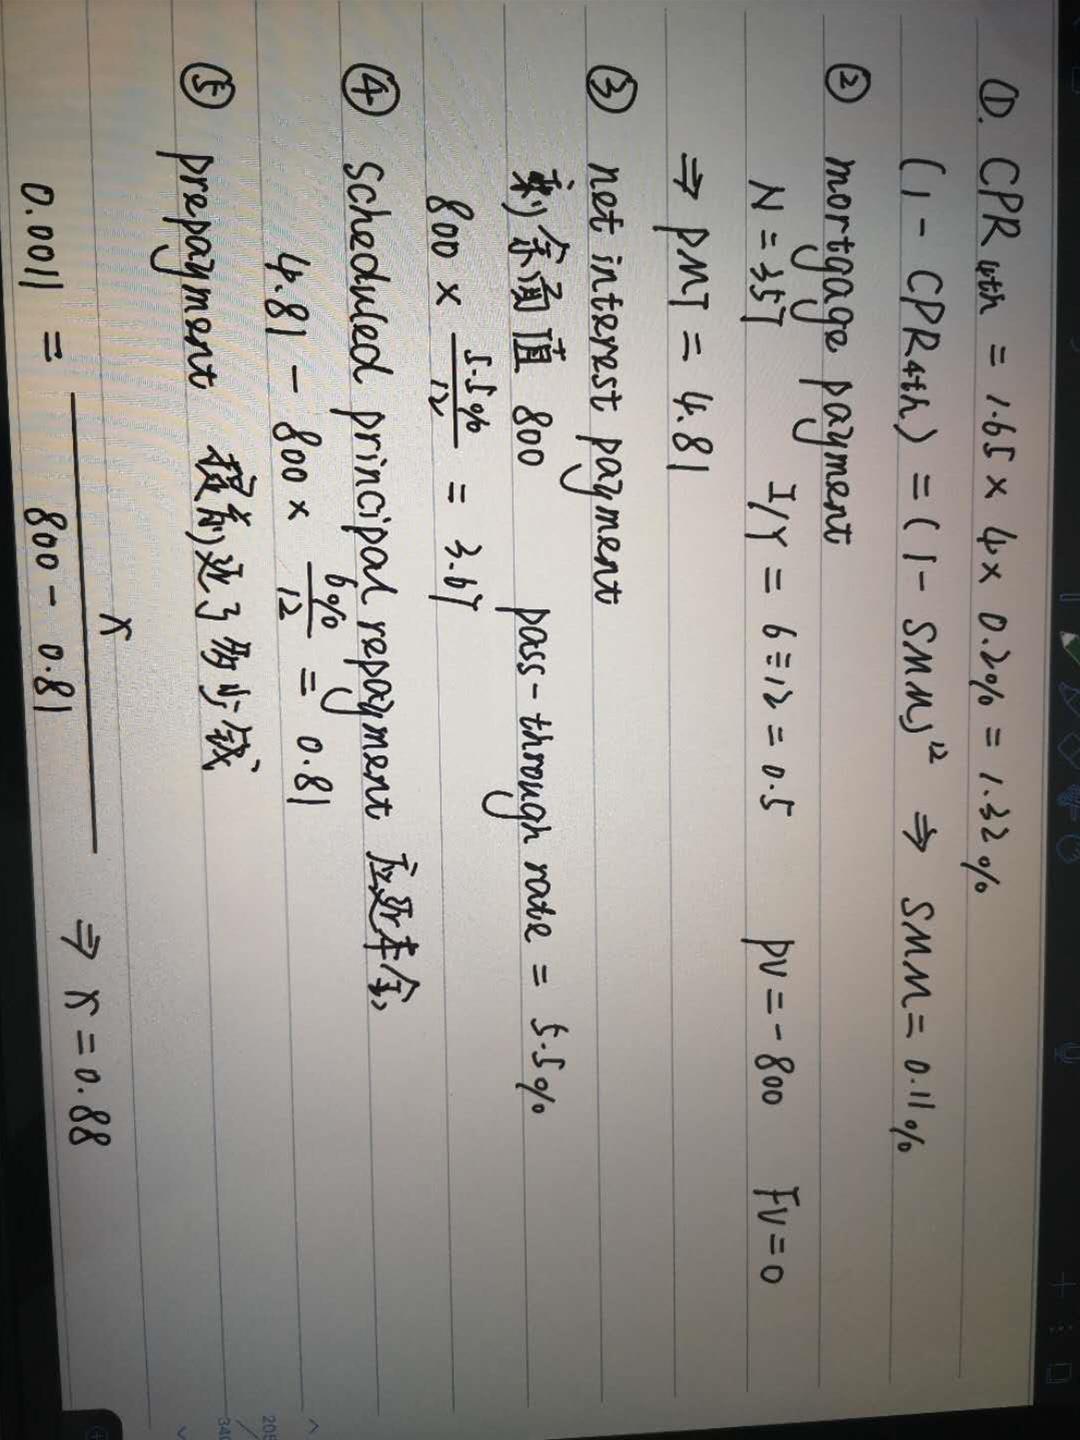 ①. CPR4th = 1.65 × 4 × 0.2% = 1.32%
(1 - CPR4th) = (1 - SMM)^12 ⇒ SMM = 0.11%
② mortgage payment
N = 357 I/Y = 6 ÷ 12 = 0.5 PV = -800 FV = 0
⇒ PMT = 4.81
③ net interest payment
剩余面值 800 pass-through rate = 5.5%
800 × 5.5%/12 = 3.67
④ scheduled principal repayment 应还本金
4.81 - 800 × 6%/12 = 0.81
⑤ prepayment 提前还了多少钱
0.0011 = x/(800 - 0.81) ⇒ x = 0.88